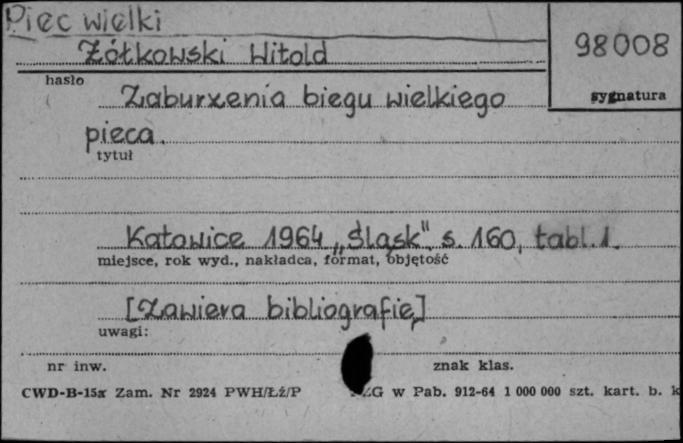 Piec wielki
Żółkowski Witold
98008
hasło
sygnatura
Zaburzenia biegu wielkiego
pieca.
tytuł
Katowice 1964 „Śląsk". s. 160, tabl. 1.
miejsce, rok wyd., nakładca, format, objętość
[Zawiera bibliografię]
uwagi:
nr inw.
znak klas.
CWD-B-15a Zam. Nr 2924 PWH/Łź/P ZG w Pab. 912-64 1 000 000 szt. kart. b. k